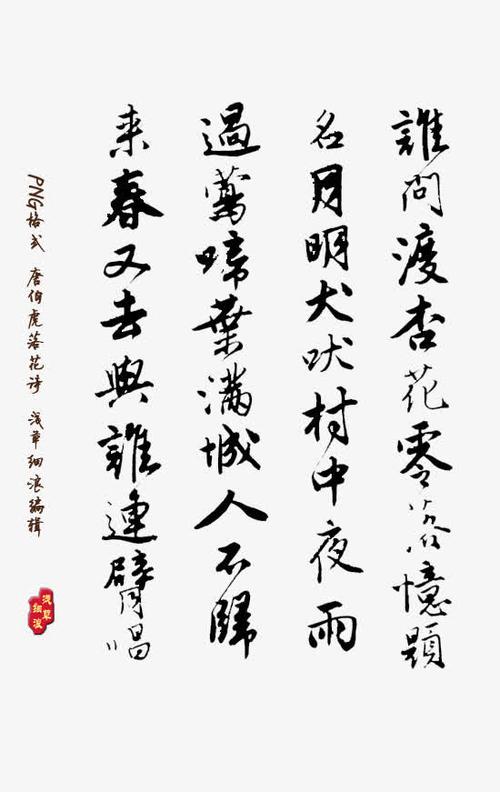 誰問渡杏花零落憶題
名月明犬吠村中夜雨
過鶯啼葉滿城人不歸
来春又去與誰連臂唱
PNG格式 唐伯虎落花诗 浅草细浪编辑
浅草
细浪